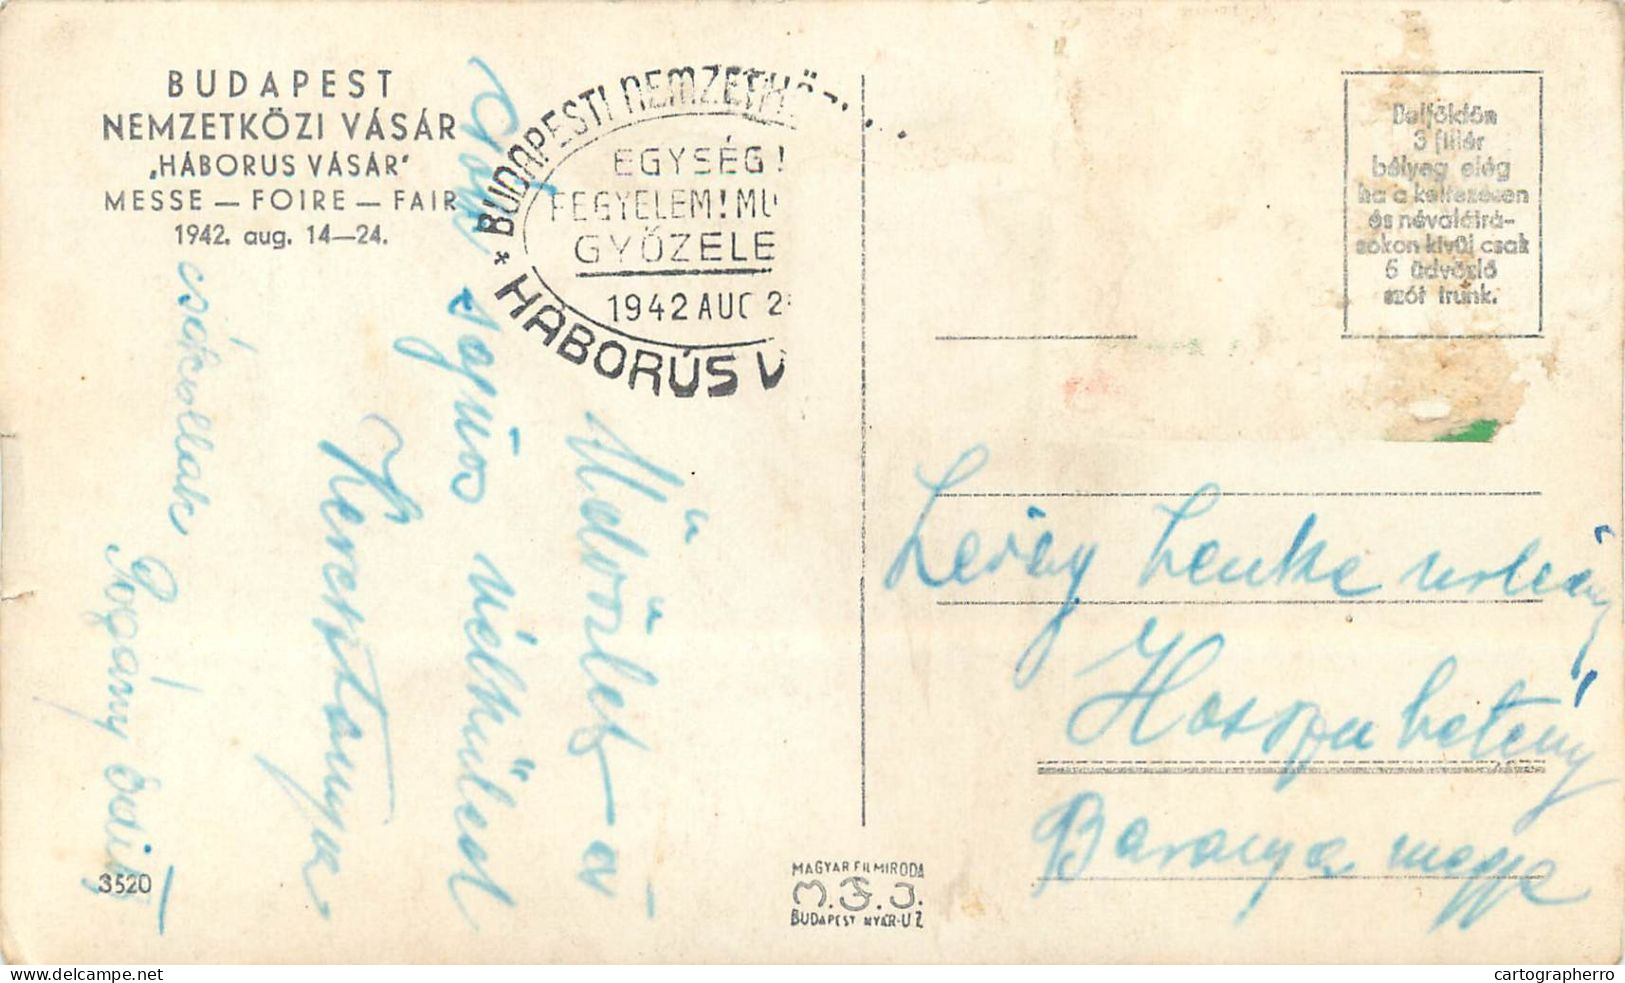 BUDAPEST
NEMZETKÖZI VÁSÁR
„HÁBORUS VÁSÁR"
MESSE — FOIRE — FAIR
1942. aug. 14—24.
BUDAPESTI NEMZETKÖZI
EGYSÉG!
FEGYELEM! MU
GYŐZELE
1942 AUG 2
* HÁBORÚS V
Belföldön
3 fillér
bélyeg elég
ha a keltezésen
és névaláírá-
sokon kivül csak
5 üdvözlő
szót irunk.
Üdvözlet a
sógús nélküled
Keresztanya
csókollak
Pogány Edit
Lévay Lenke urleány
Hosszuhetény
Baranya megye
3520
MAGYAR FILMIRODA
M.F.I.
BUDAPEST NYÁR-U 2
cartographerro